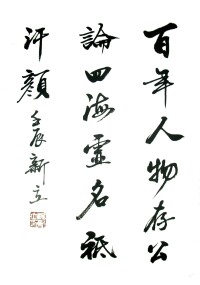 百年人物存公
論四海虛名祗
汗顏
壬辰新立